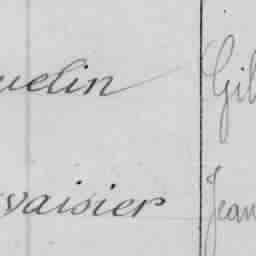 uelin Gil
vaisier Jean